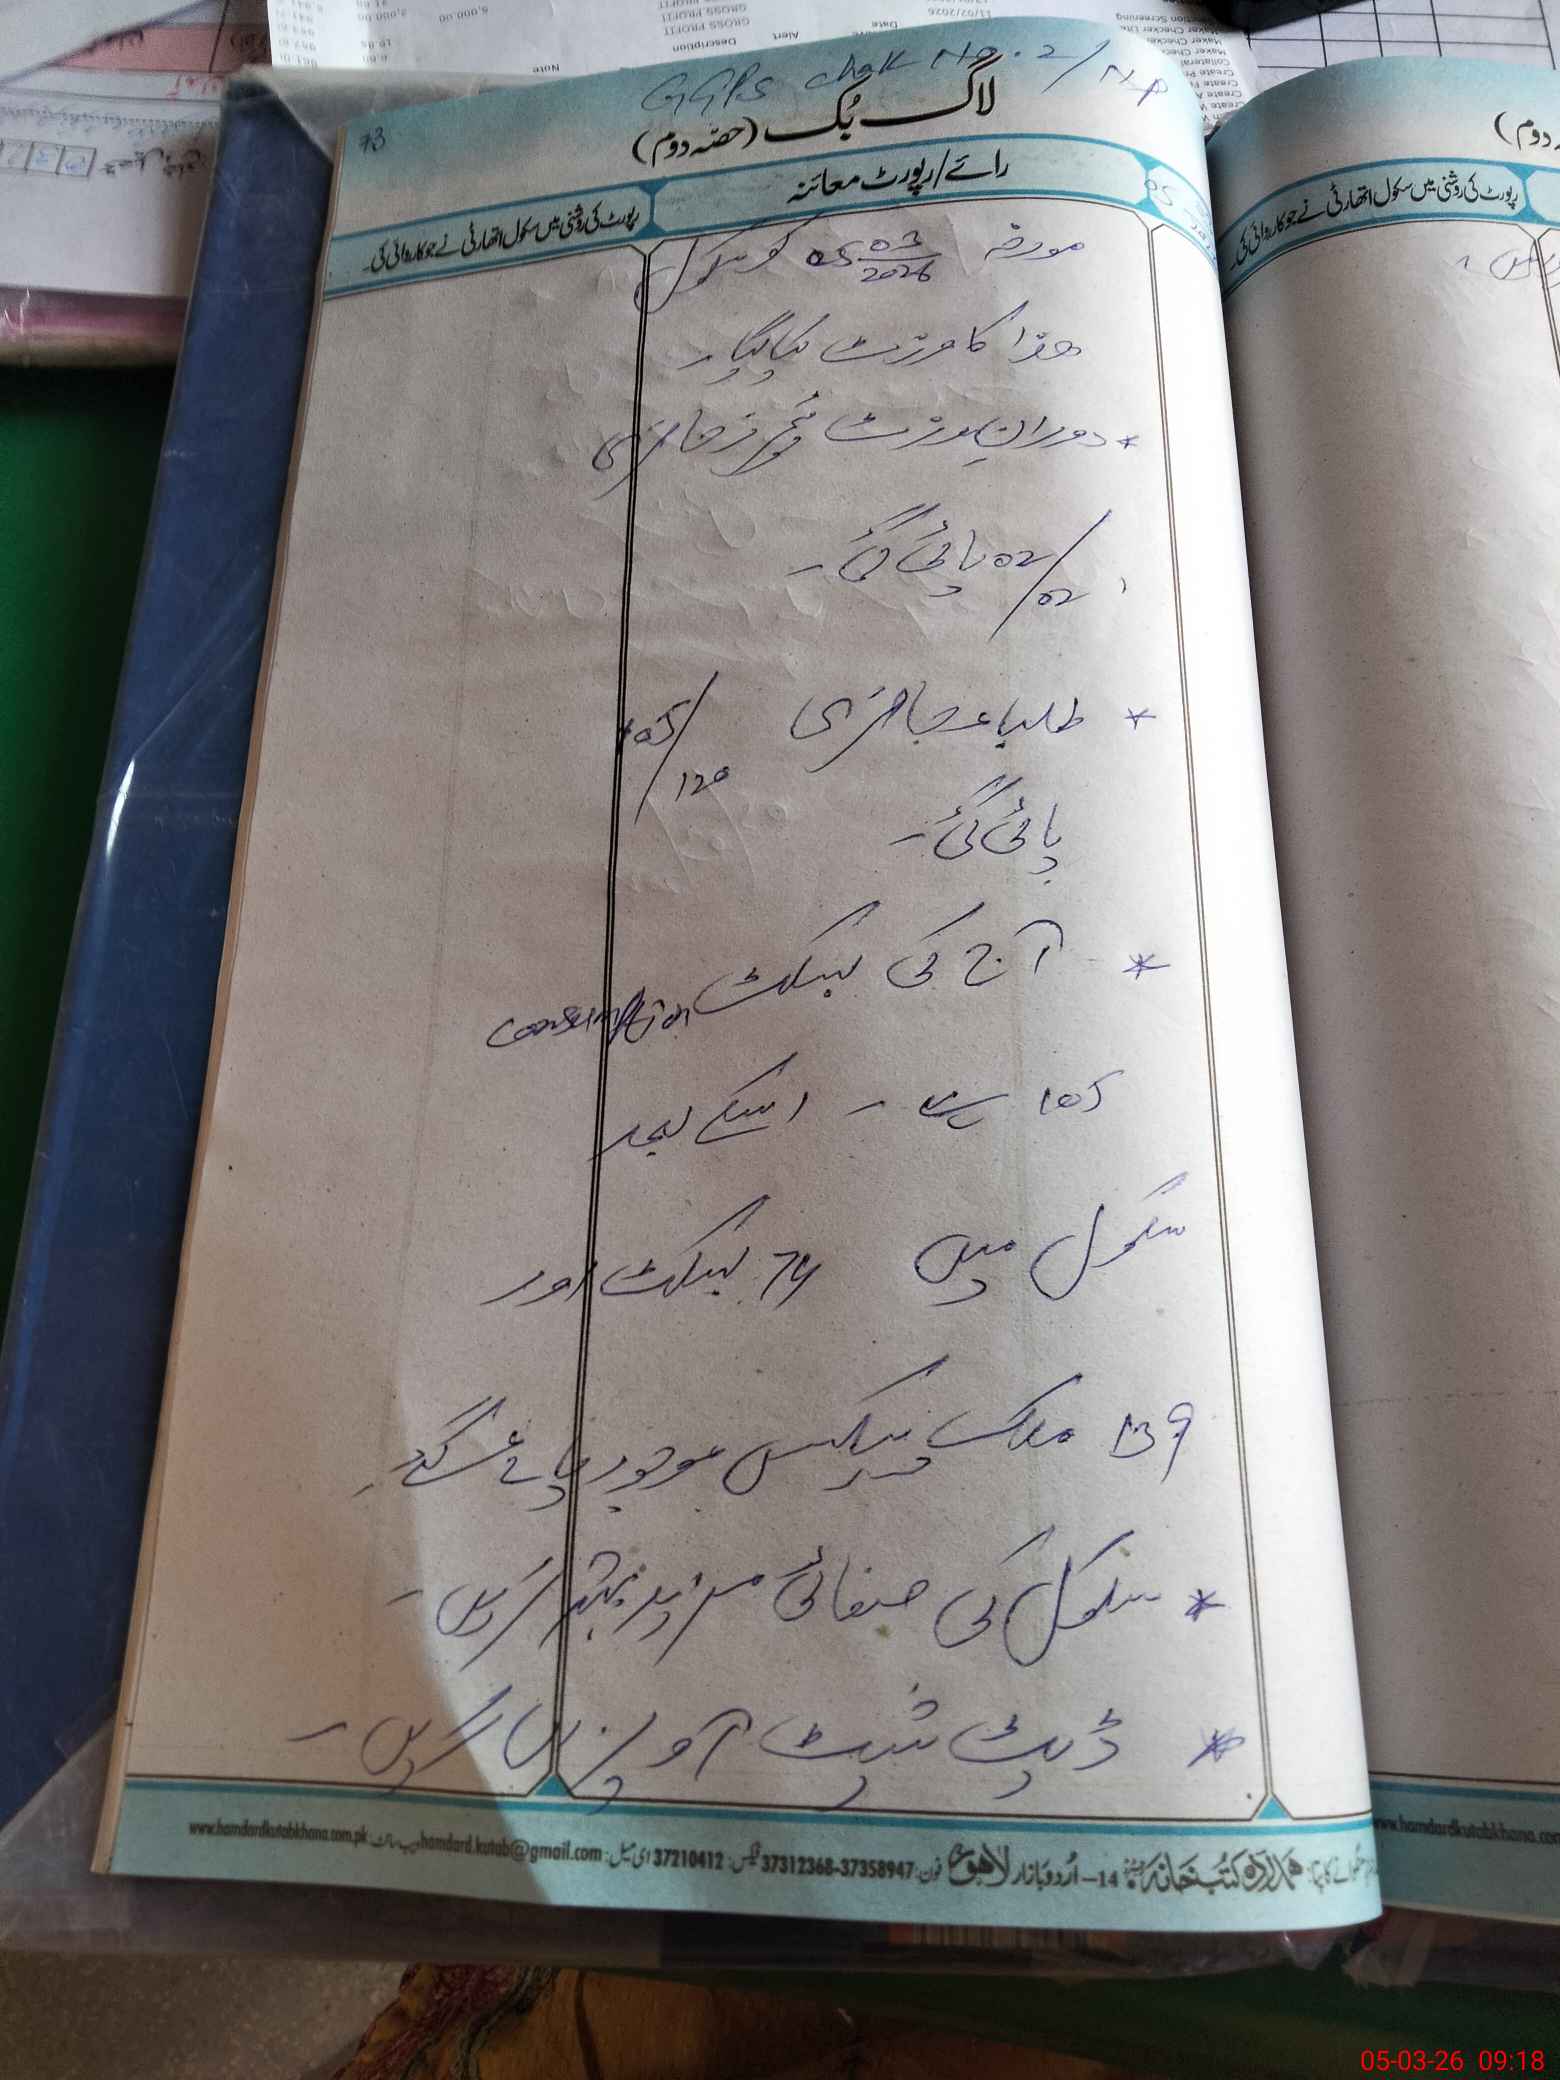 GGPS Chak No. 2/NP
73
لاگ بک (حصہ دوم)
رائے/رپورٹ معائنہ
رپورٹ کی روشنی میں سکول اتھارٹی نے جو کاروائی کی۔
مورخہ 05 03/2026 کو سکول
ھذا کا وزٹ کیا گیا۔
* دوران وزٹ ٹیچرز حاضری
02/02 پائی گئی۔
* طلباء حاضری 105/120
پائی گئی۔
* آج کی لیکٹ consumption
105 ہے۔ اسکے بعد
سکول میں 74 لیکٹ اور
139 ملک پیکس موجود پائے گئے۔
* سکول کی صفائی مزید بہتر کریں۔
* ڈیٹ شیٹ آویزاں کریں۔
ہمدرد کتب خانہ 14-اردو بازار لاہور فون: 37312368-37358947 فیکس: 37210412 ای میل: hamdard.kutab@gmail.com ویب سائٹ: www.hamdardkutabkhana.com.pk
دوم)
رپورٹ کی روشنی میں سکول اتھارٹی نے جو کاروائی کی۔
www.hamdardkutabkhana.com
Description
Alert
Date
Note
GROSS PROFIT
GROSS PROFIT
11/02/2026
5,000.00
05-03-26 09:18